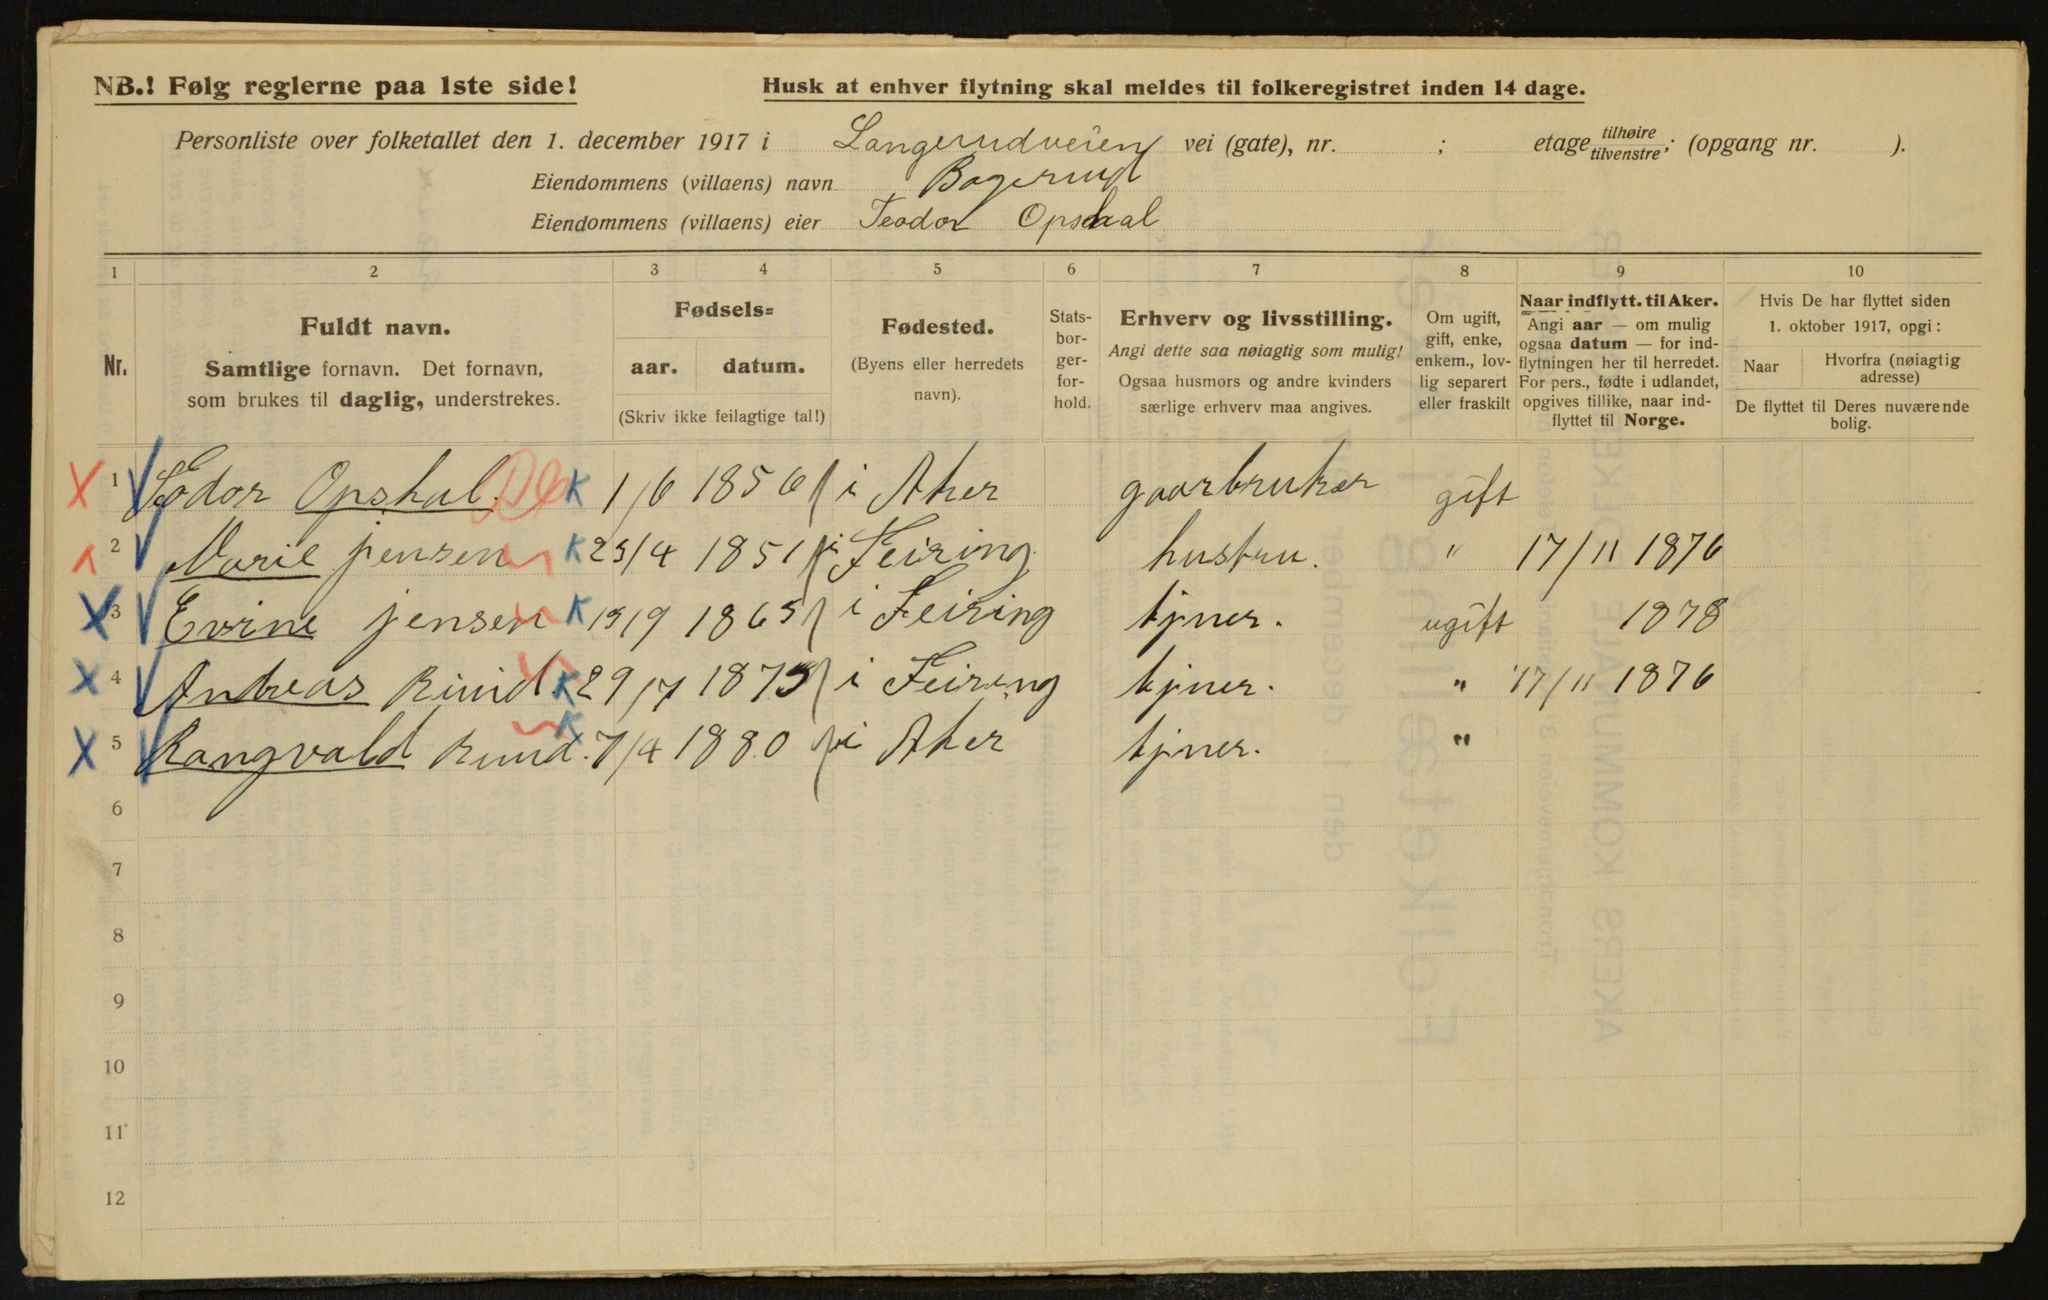 NB.! Følg reglerne paa 1ste side!
Husk at enhver flytning skal meldes til folkeregistret inden 14 dage.
Personliste over folketallet den 1. december 1917 i Langerudveien vei (gate), nr. ; etage tilhøire tilvenstre; (opgang nr. ).
Eiendommens (villaens) navn Bogerud
Eiendommens (villaens) eier Teodor Opshal
1 2 3 4 5 6 7 8 9 10
Nr.
Fuldt navn.
Samtlige fornavn. Det fornavn,
som brukes til daglig, understrekes.
Fødsels=
aar. datum.
(Skriv ikke feilagtige tal!)
Fødested.
(Byens eller herredets
navn).
Stats-
bor-
ger-
for-
hold.
Erhverv og livsstilling.
Angi dette saa nøiagtig som mulig!
Ogsaa husmors og andre kvinders
særlige erhverv maa angives.
Om ugift,
gift, enke,
enkem., lov-
lig separert
eller fraskilt
Naar indflytt. til Aker.
Angi aar — om mulig
ogsaa datum — for ind-
flytningen her til herredet.
For pers., fødte i utlandet,
opgives tillike, naar ind-
flyttet til Norge.
Hvis De har flyttet siden
1. oktober 1917, opgi:
Naar
Hvorfra (nøiagtig
adresse)
De flyttet til Deres nuværende
bolig.
X 1 Teodor Opshal. K 1/6 1856 i Aker gaarbruker gift
2 Marie jensen K 23/4 1851 i Feiring hustru. " 17/11 1876
X 3 Evine jensen K 19/9 1865 i Feiring tjner. ugift 1878
X 4 Andreas Ruud K 29/7 1875 i Feiring tjner. " 17/11 1876
X 5 Rangvald Ruud. K 7/4 1880 i Aker tjner. "
6
7
8
9
10
11
12